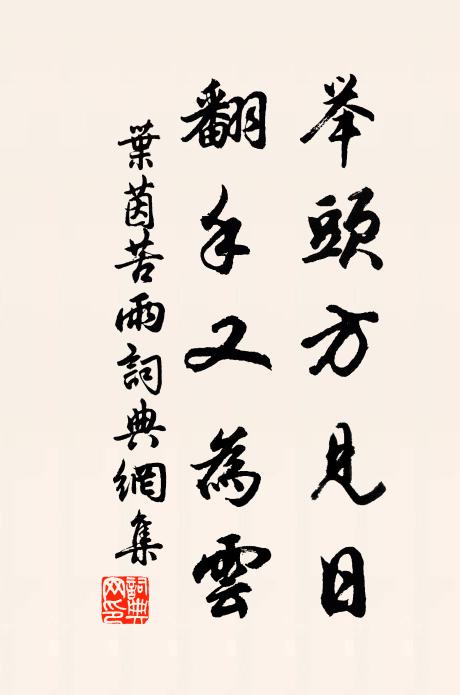 举頭方見日
翻手又為雲
葉茵苦雨詞典網集
詞典網印